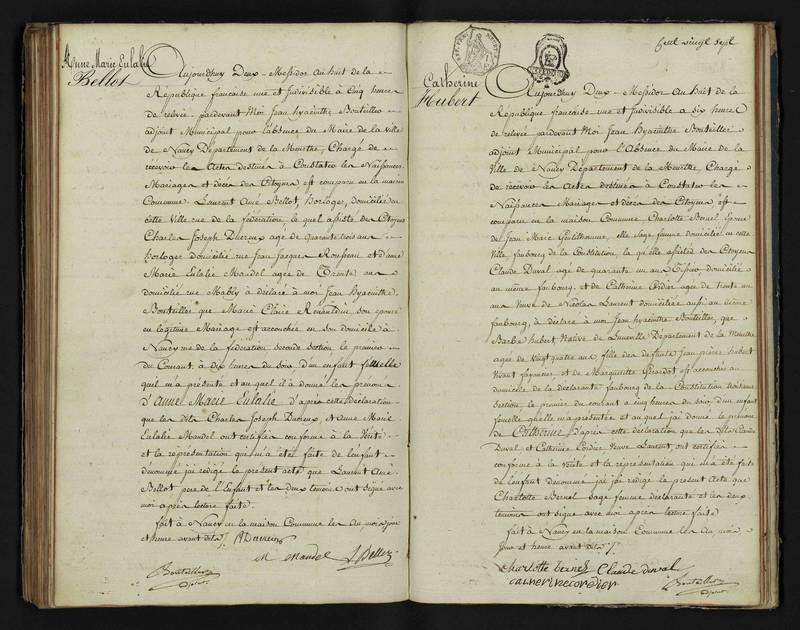 Anne Marie Eulalie
Bellot
Aujourdhuy Deux Messidor an huit de la
République française une et Indivisible à Cinq heures
de relevée, pardevant Moi Jean hyacinthe Bouteiller
adjoint Municipal pour l'absence du Maire de la ville
de Nancy Département de la Meurthe Chargé de
recevoir les Actes destinés à Constater les Naissances
Mariages et décès des Citoyens est comparu en la maison
Commune Laurent Aimé Bellot, horloger, domicilié en
cette Ville rue de la fédération, le quel assisté des Citoyens
Charles Joseph agé de quarante trois ans
horloger domicilié rue Jean Jacques Rousseau et d'anne
Marie Eulalie Mandel agée de Trente ans
domiciliée rue Mably à déclaré à moi Jean Hyacinthe
Bouteiller que Marie Claire son épouse
en légitime Mariage est accouchée en son domicile à
Nancy rue de la fédération seconde section le premier
du Courant à dix heures du soir d'un enfant femelle
quil m'a présenté et auquel il à donné les prénoms
d'Anne Marie Eulalie d'après cette déclaration
que les dits Charles Joseph et Anne Marie
Eulalie Mandel ont certifiée conforme à la Vérité
et la représentation qui m'a été faite de l'enfant
dénommé jai rédigé le présent acte que Laurent Aimé
Bellot père de l'Enfant et les deux témoins ont signé avec
moi après lecture faite.
fait à Nancy en la maison Commune les an, mois, jour
et heure avant dits
M Mandel L Bellot
Bouteiller
adjoint
feuil vingt sept
Catherine
Hubert
Aujourdhuy Deux Messidor an huit de la
République française une et Indivisible à six heures
de relevée pardevant Moi Jean Hyacinthe Bouteiller
adjoint Municipal pour l'Absence du Maire de la
Ville de Nancy Département de la Meurthe Chargé
de recevoir les Actes destinés à Constater les
Naissances Mariages et décès des Citoyens est
comparu en la maison Commune Charlotte
de Jean Marie Gentilhomme, elle Sage femme domiciliée en cette
Ville, faubourg de la Constitution, la quelle assistée des Citoyens
Claude Duval agé de quarante un ans domicilié
au même faubourg, et de Catherine Cordier agée de trente un
ans Veuve de Nicolas Laurent domiciliée aussi au même
faubourg, à déclaré à moi Jean hyacinthe Bouteiller, que
Barbe hubert Native de Lunéville Département de la Meurthe
agée de Vingt quatre ans fille des défunts Jean pierre hubert
Vivant fayancier et de Marguerite Girardot est accouchée au
domicile de la déclarante faubourg de la Constitution troisieme
section, le premier du courant à cinq heures du soir d'un enfant
femelle quelle m'a présentée et au quel jai donné le prénom
de Catherine D'après cette déclaration que les dits Claude
Duval et Catherine Cordier Veuve Laurent, ont certifiée
conforme à la Vérité et la représentation qui m'a été faite
de l'enfant dénommé jai rédigé le présent Acte que
Charlotte sage femme déclarante et les deux
témoins ont signé avec moi après lecture faite
fait à Nancy en la maison Commune les An, mois,
Jour et heure avant dits
charlotte Claude duval
catherine cordier
Bouteiller
adjoint